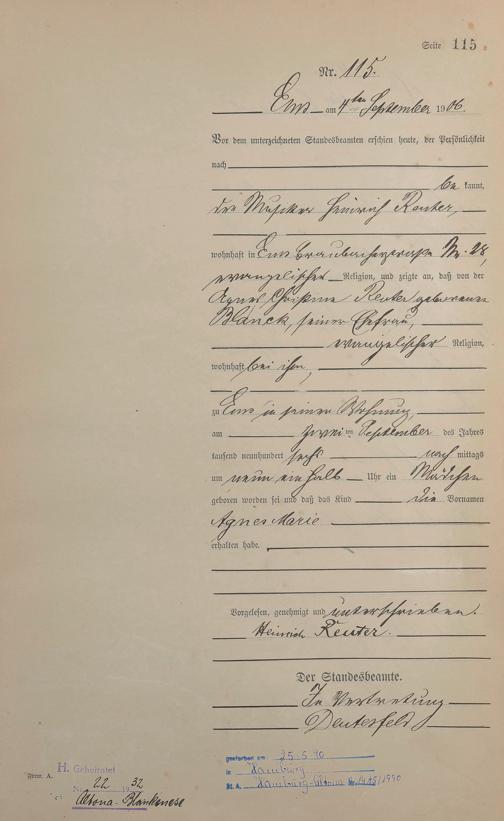 Seite 115
Nr. 115.
Ems am 4ten September 1906.
Vor dem unterzeichneten Standesbeamten erschien heute, der Persönlichkeit
nach
be kannt,
der Musiker Heinrich Reuter,
wohnhaft in Ems Braubacherstraße Nr. 28,
evangelischer Religion, und zeigte an, daß von der
Agnes Christine Reuter geborenen
Blanck, seiner Ehefrau,
evangelischer Religion,
wohnhaft bei ihm,
zu Ems in seiner Wohnung,
am zweiten September des Jahres
tausend neunhundert sechs nach mittags
um neun einhalb Uhr ein Mädchen
geboren worden sei und daß das Kind die Vornamen
Agnes Marie
erhalten habe.
Vorgelesen, genehmigt und unterschrieben.
Heinrich Reuter.
Der Standesbeamte.
In Vertretung
gestorben am: 25.5.90
in Hamburg
St. A. Hamburg-Altona Nr. 1415/1990
Form. A.
H. Geheiratet
Nr. 22 1932
Altona-Blankenese